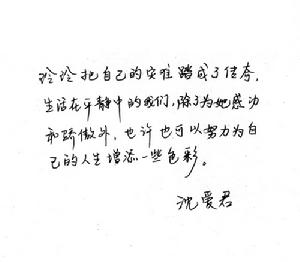 玲玲把自己的灾难踏成了传奇，
生活在平静中的我们，除了为她感动
和骄傲外，也许也可以努力为自
己的人生增添一些色彩。
沈爱君